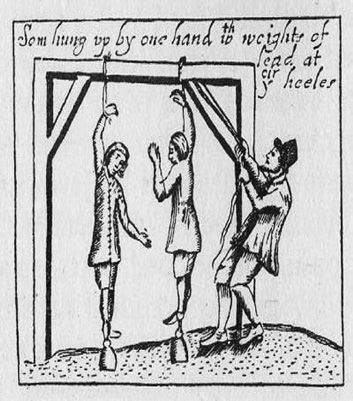 Som hung vp by one hand wth weights of
lead at
yeir heeles